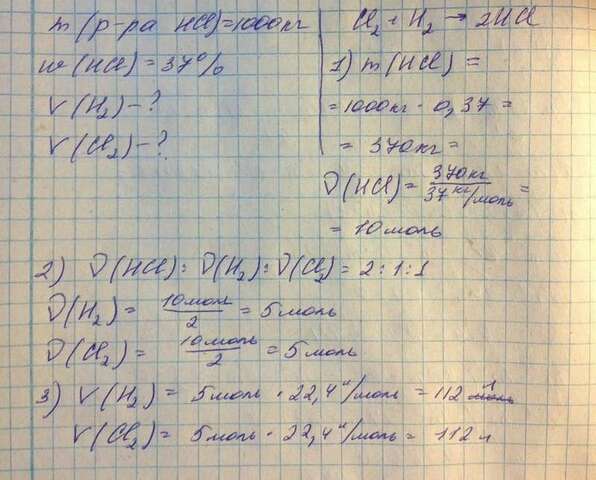 m(р-ра HCl)=1000кг
w(HCl)=37%
V(H₂)-?
V(Cl₂)-?
Cl₂+H₂→2HCl
1) m(HCl)=
=1000кг·0,37=
=370кг=
ν(HCl)=370кг/37кг/моль=
=10моль
2) ν(HCl):ν(H₂):ν(Cl₂)=2:1:1
ν(H₂)=10моль/2=5моль
ν(Cl₂)=10моль/2=5моль
3) V(H₂)=5моль·22,4л/моль=112л
V(Cl₂)=5моль·22,4л/моль=112л